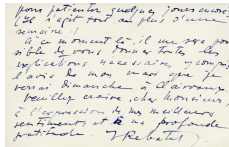 pour patienter quelques jours encore.
(Il s'agit tout au plus d'une
semaine.)
A ce moment-là, il me sera pos-
sible de vous donner toutes les
explications nécessaires, y compris
l'avis de mon mari que je
verrai dimanche à Clairvaux.
Veuillez croire, cher Monsieur,
à l'expression de mes meilleurs
sentiments et à ma profonde
gratitude. Rebatet